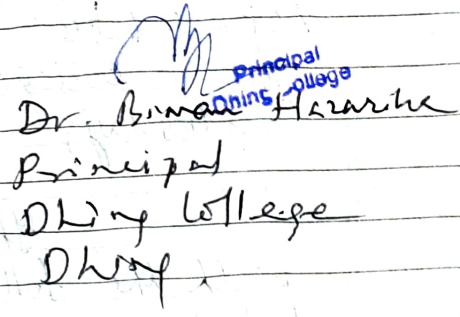 Principal
Dhing College
Dr. Biman Hazarika
Principal
Dhing College
Dhing.